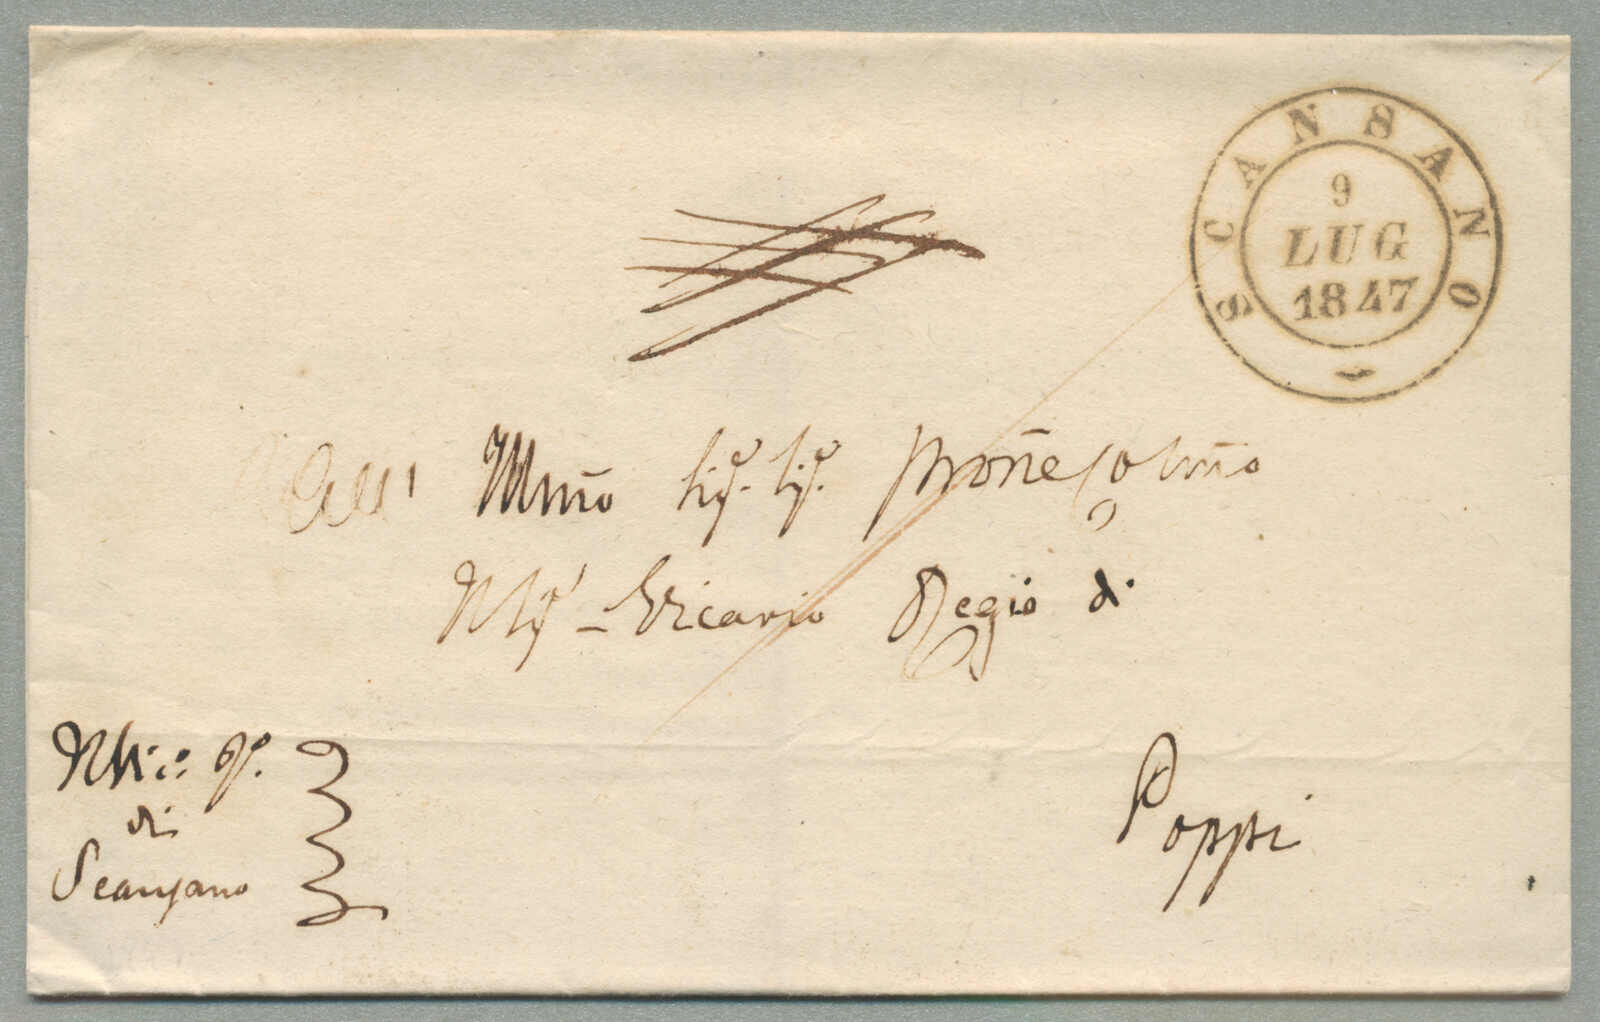 SCANSANO
9
LUG
1847
All' Illmo Sig. Sig. Prone Colmo
Il Sig. Vicario Regio di
Poppi
di
Scansano